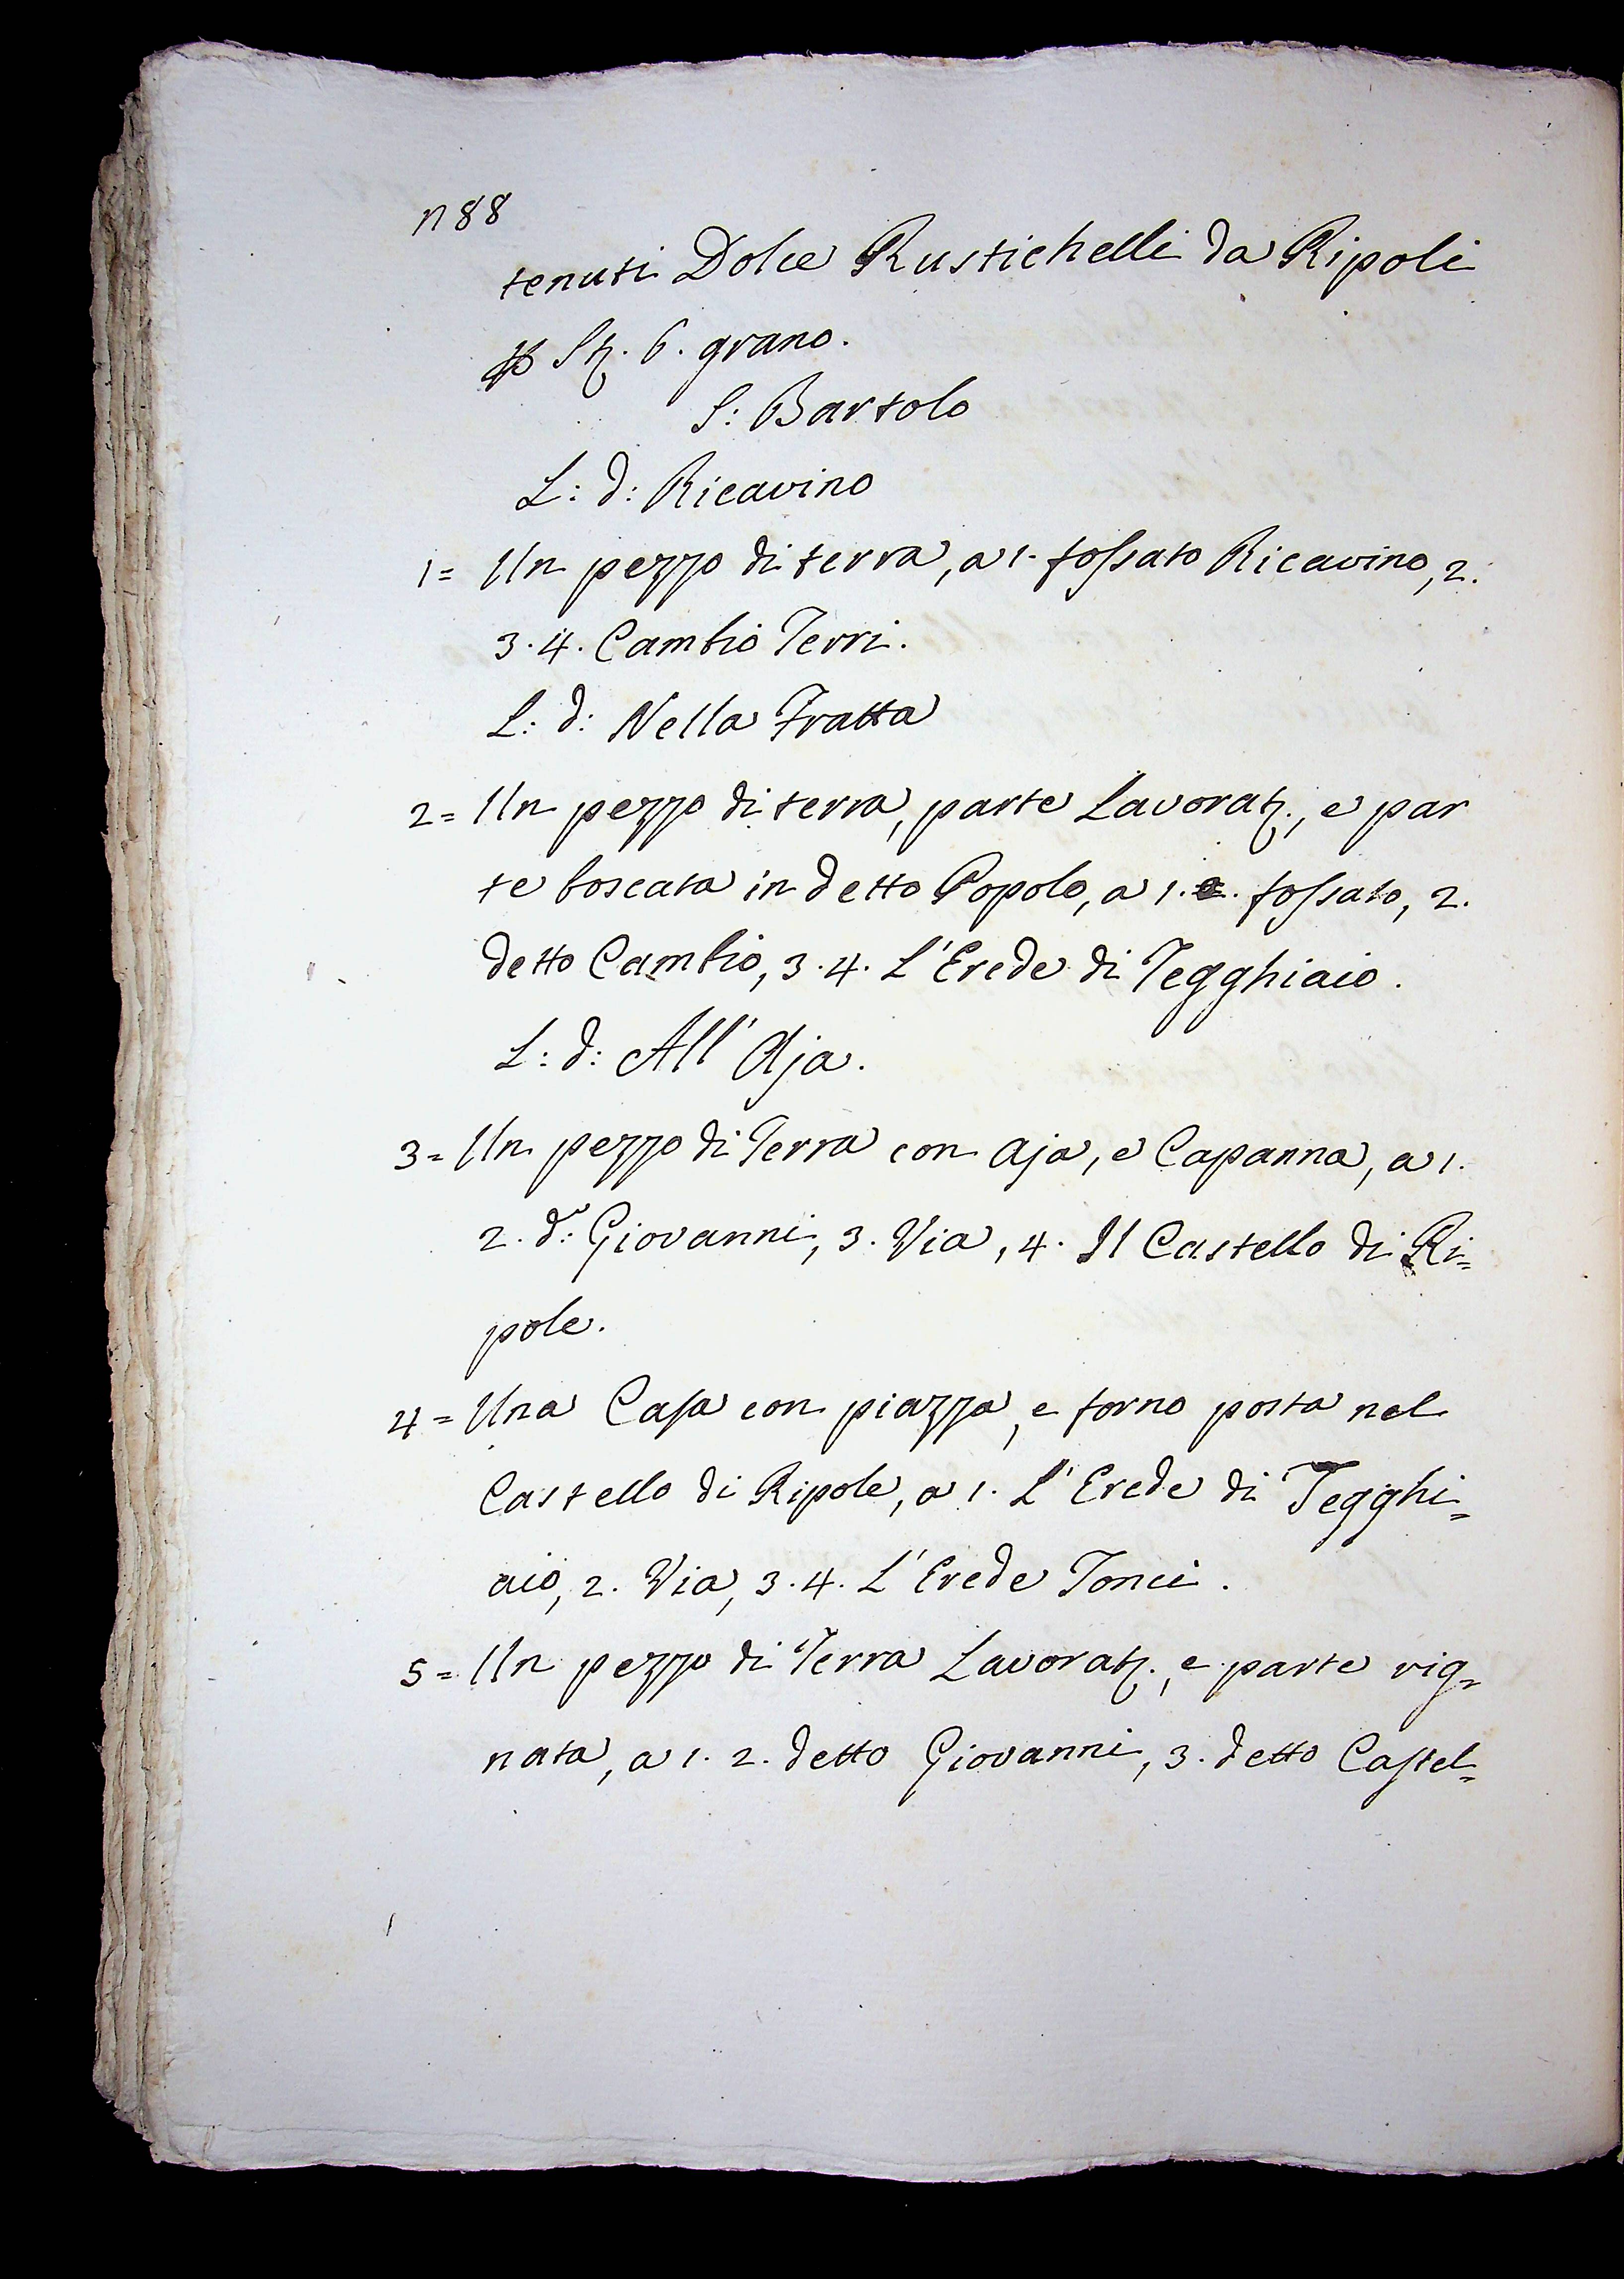 n 88
tenuti Dolce Rustichelli da Ripoli
p Stz. 6. grano.
S: Bartolo
L: d: Ricavino
1= Un pezzo di terra, a 1. fossato Ricavino, 2.
3. 4. Cambio Terri.
L: d: Nella Fratta
2= Un pezzo di terra, parte Lavoratz., e par
te boscata in detto Popolo, a 1. fossato, 2.
detto Cambio, 3. 4. L'Erede di Tegghiaio.
L: d: All' Aja.
3= Un pezzo di Terra con Aja, e Capanna, a 1.
2. d: Giovanni, 3. Via, 4. Il Castello di Ri=
pole.
4= Una Casa con piazza, e forno posta nel
Castello di Ripole, a 1. L' Erede di Tegghi=
aio, 2. Via, 3. 4. L' Erede Tonci.
5= Un pezzo di Terra Lavoratz., e parte vig=
nata, a 1. 2. detto Giovanni, 3. detto Castel=